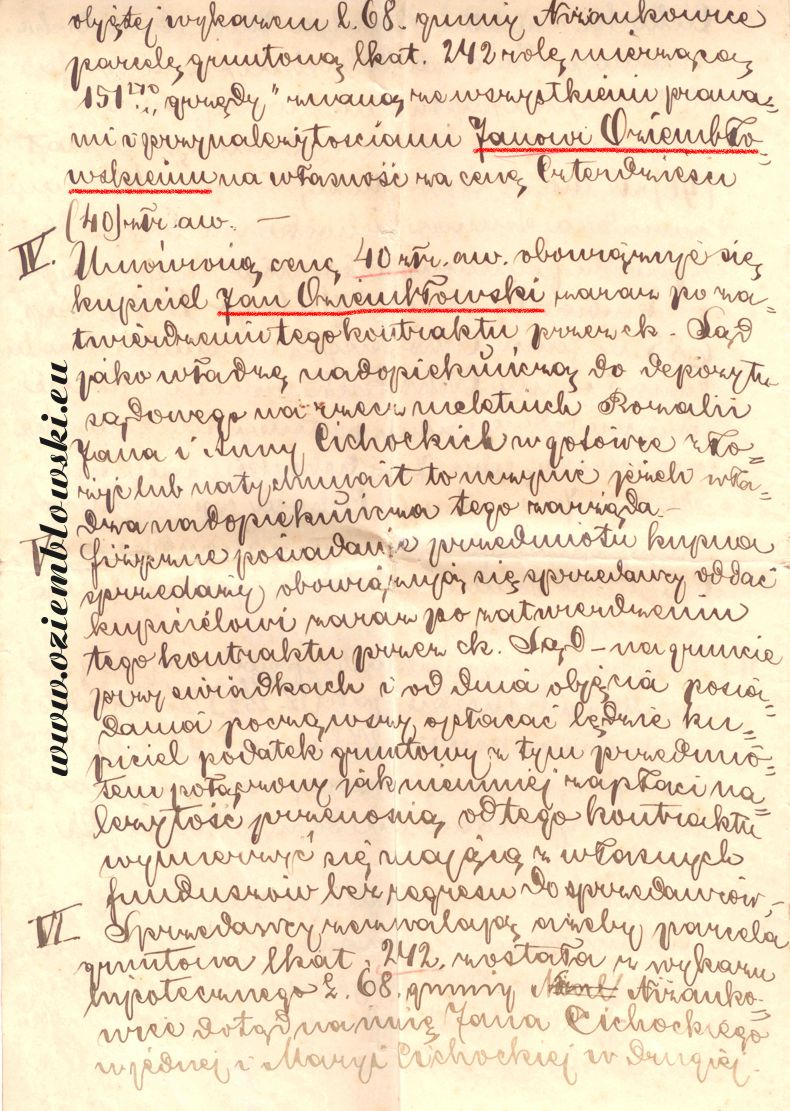 objętej wykazem L. 68. gminy Niżankowice
parcelę gruntową lkat. 242 rolę mierzącą
151 "grzędy" zwaną ze wszystkiemi prawa=
mi i przynależytościami Janowi Oziembło-
wskiemu na własność za cenę Czterdzieści
(40) złr. aw. —
IV. Umówioną cenę 40 złr. aw. obowiązuje się
kupiciel Jan Oziembłowski zaraz po za=
twierdzeniu tego kontraktu przez ck. Sąd
jako władzę nadopiekuńczą do depozytu
sądowego na rzecz nieletnich Rozalii
Jana i Anny Cichockich w gotówce zło=
żyć lub natychmiast to uczynić jeżeli wła=
dza nadopiekuńcza tego zarząda. —
V. fizyczne posiadanie przedmiotu kupna
sprzedaży obowiązują się sprzedawcy oddać
kupicielowi zaraz po zatwierdzeniu
tego kontraktu przez ck. Sąd — na gruncie
przy świadkach i od dnia objęcia posia=
dania począwszy opłacać będzie ku=
piciel podatek gruntowy z tym przedmio=
tem połączony jak niemniej zapłaci na=
leżytość przenośną od tego kontraktu
wymierzyć się mającą z własnych
funduszów bez regresu do sprzedawców, —
VI Sprzedawcy zezwalają ażeby parcela
gruntowa lkat. 242. została z wykazu
hipotecznego L. 68. gminy Niżanko=
wice dotąd na imię Jana Cichockiego
w jednej i Maryi Cichockiej w drugiej.
www.oziemblowski.eu